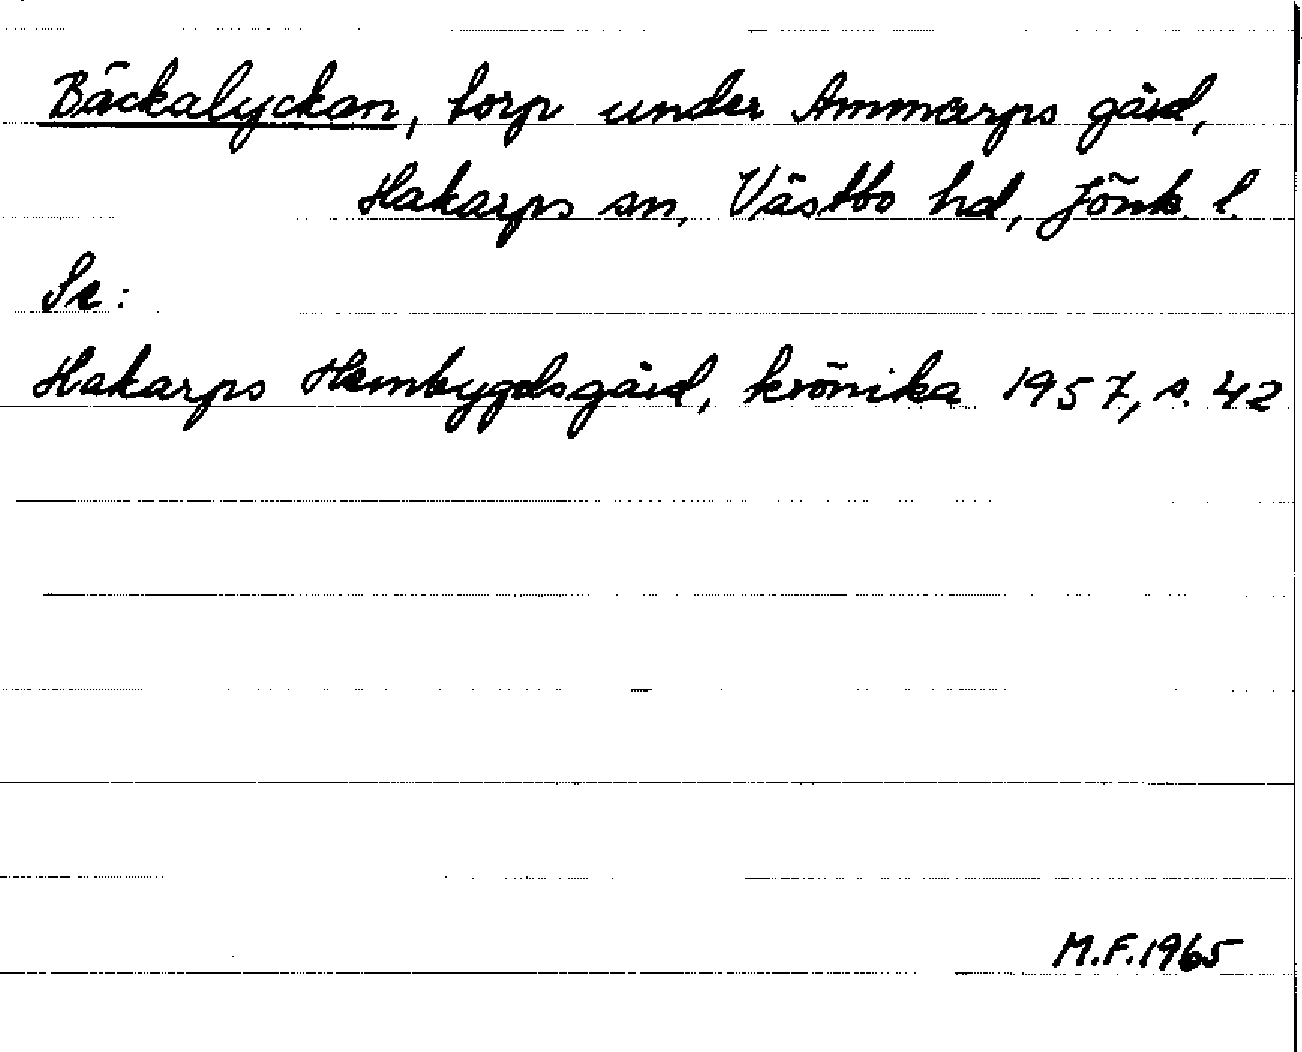 Bäckalyckan, torp under Ammarps gård,
Hakarps sn, Västbo hd, Jönk. l.
Se:
Hakarps Hembygdsgård, krönika 1957, s. 42
M.F. 1965